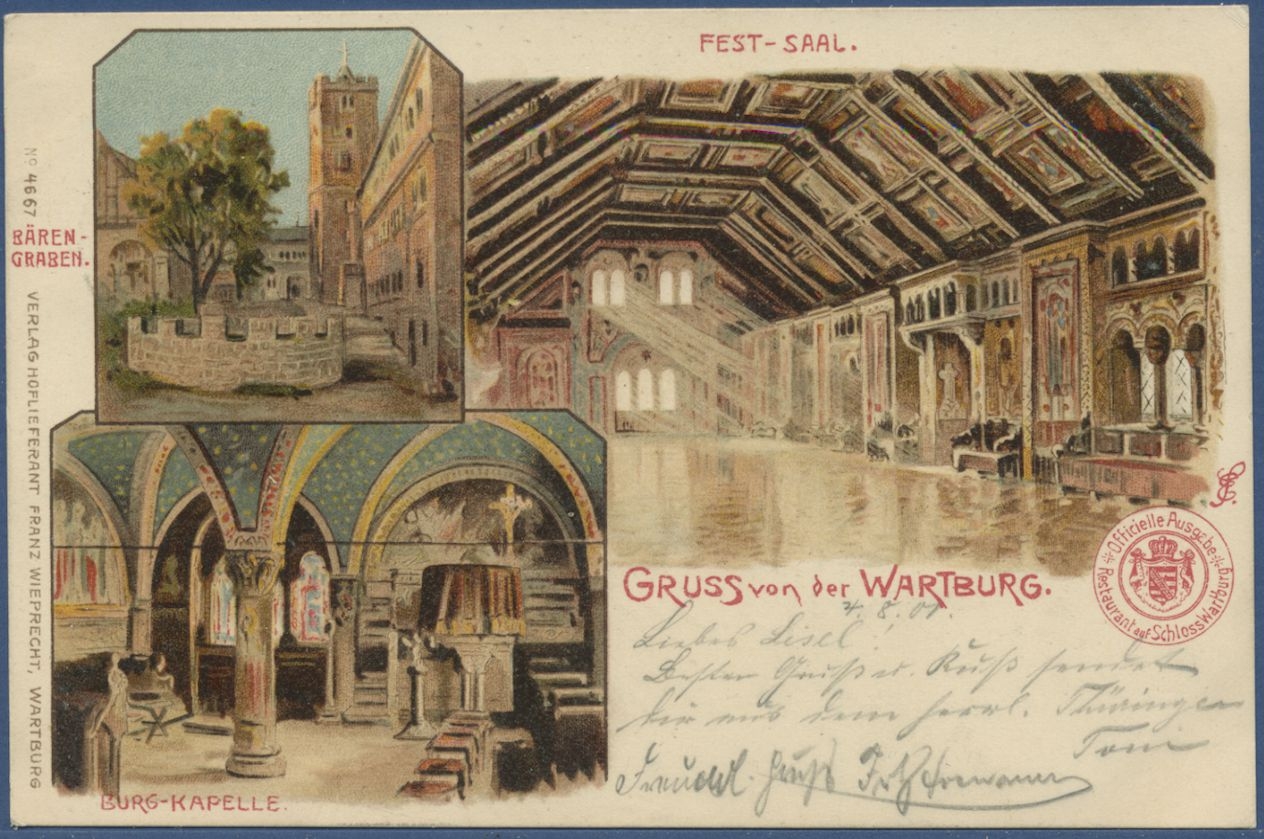 FEST-SAAL.
BÄREN-
GRABEN.
No 4667 VERLAG HOFLIEFERANT FRANZ WIEPRECHT, WARTBURG
BURG-KAPELLE.
GRUSS von der WARTBURG.
Officielle Ausgabe
Restaurant auf Schloss Wartburg
4. 8. 01.
Liebes Lisel.
Besten Gruß u. Kuß sendet
dir aus dem herrl. Thüringen
Toni
Freundl. Gruß